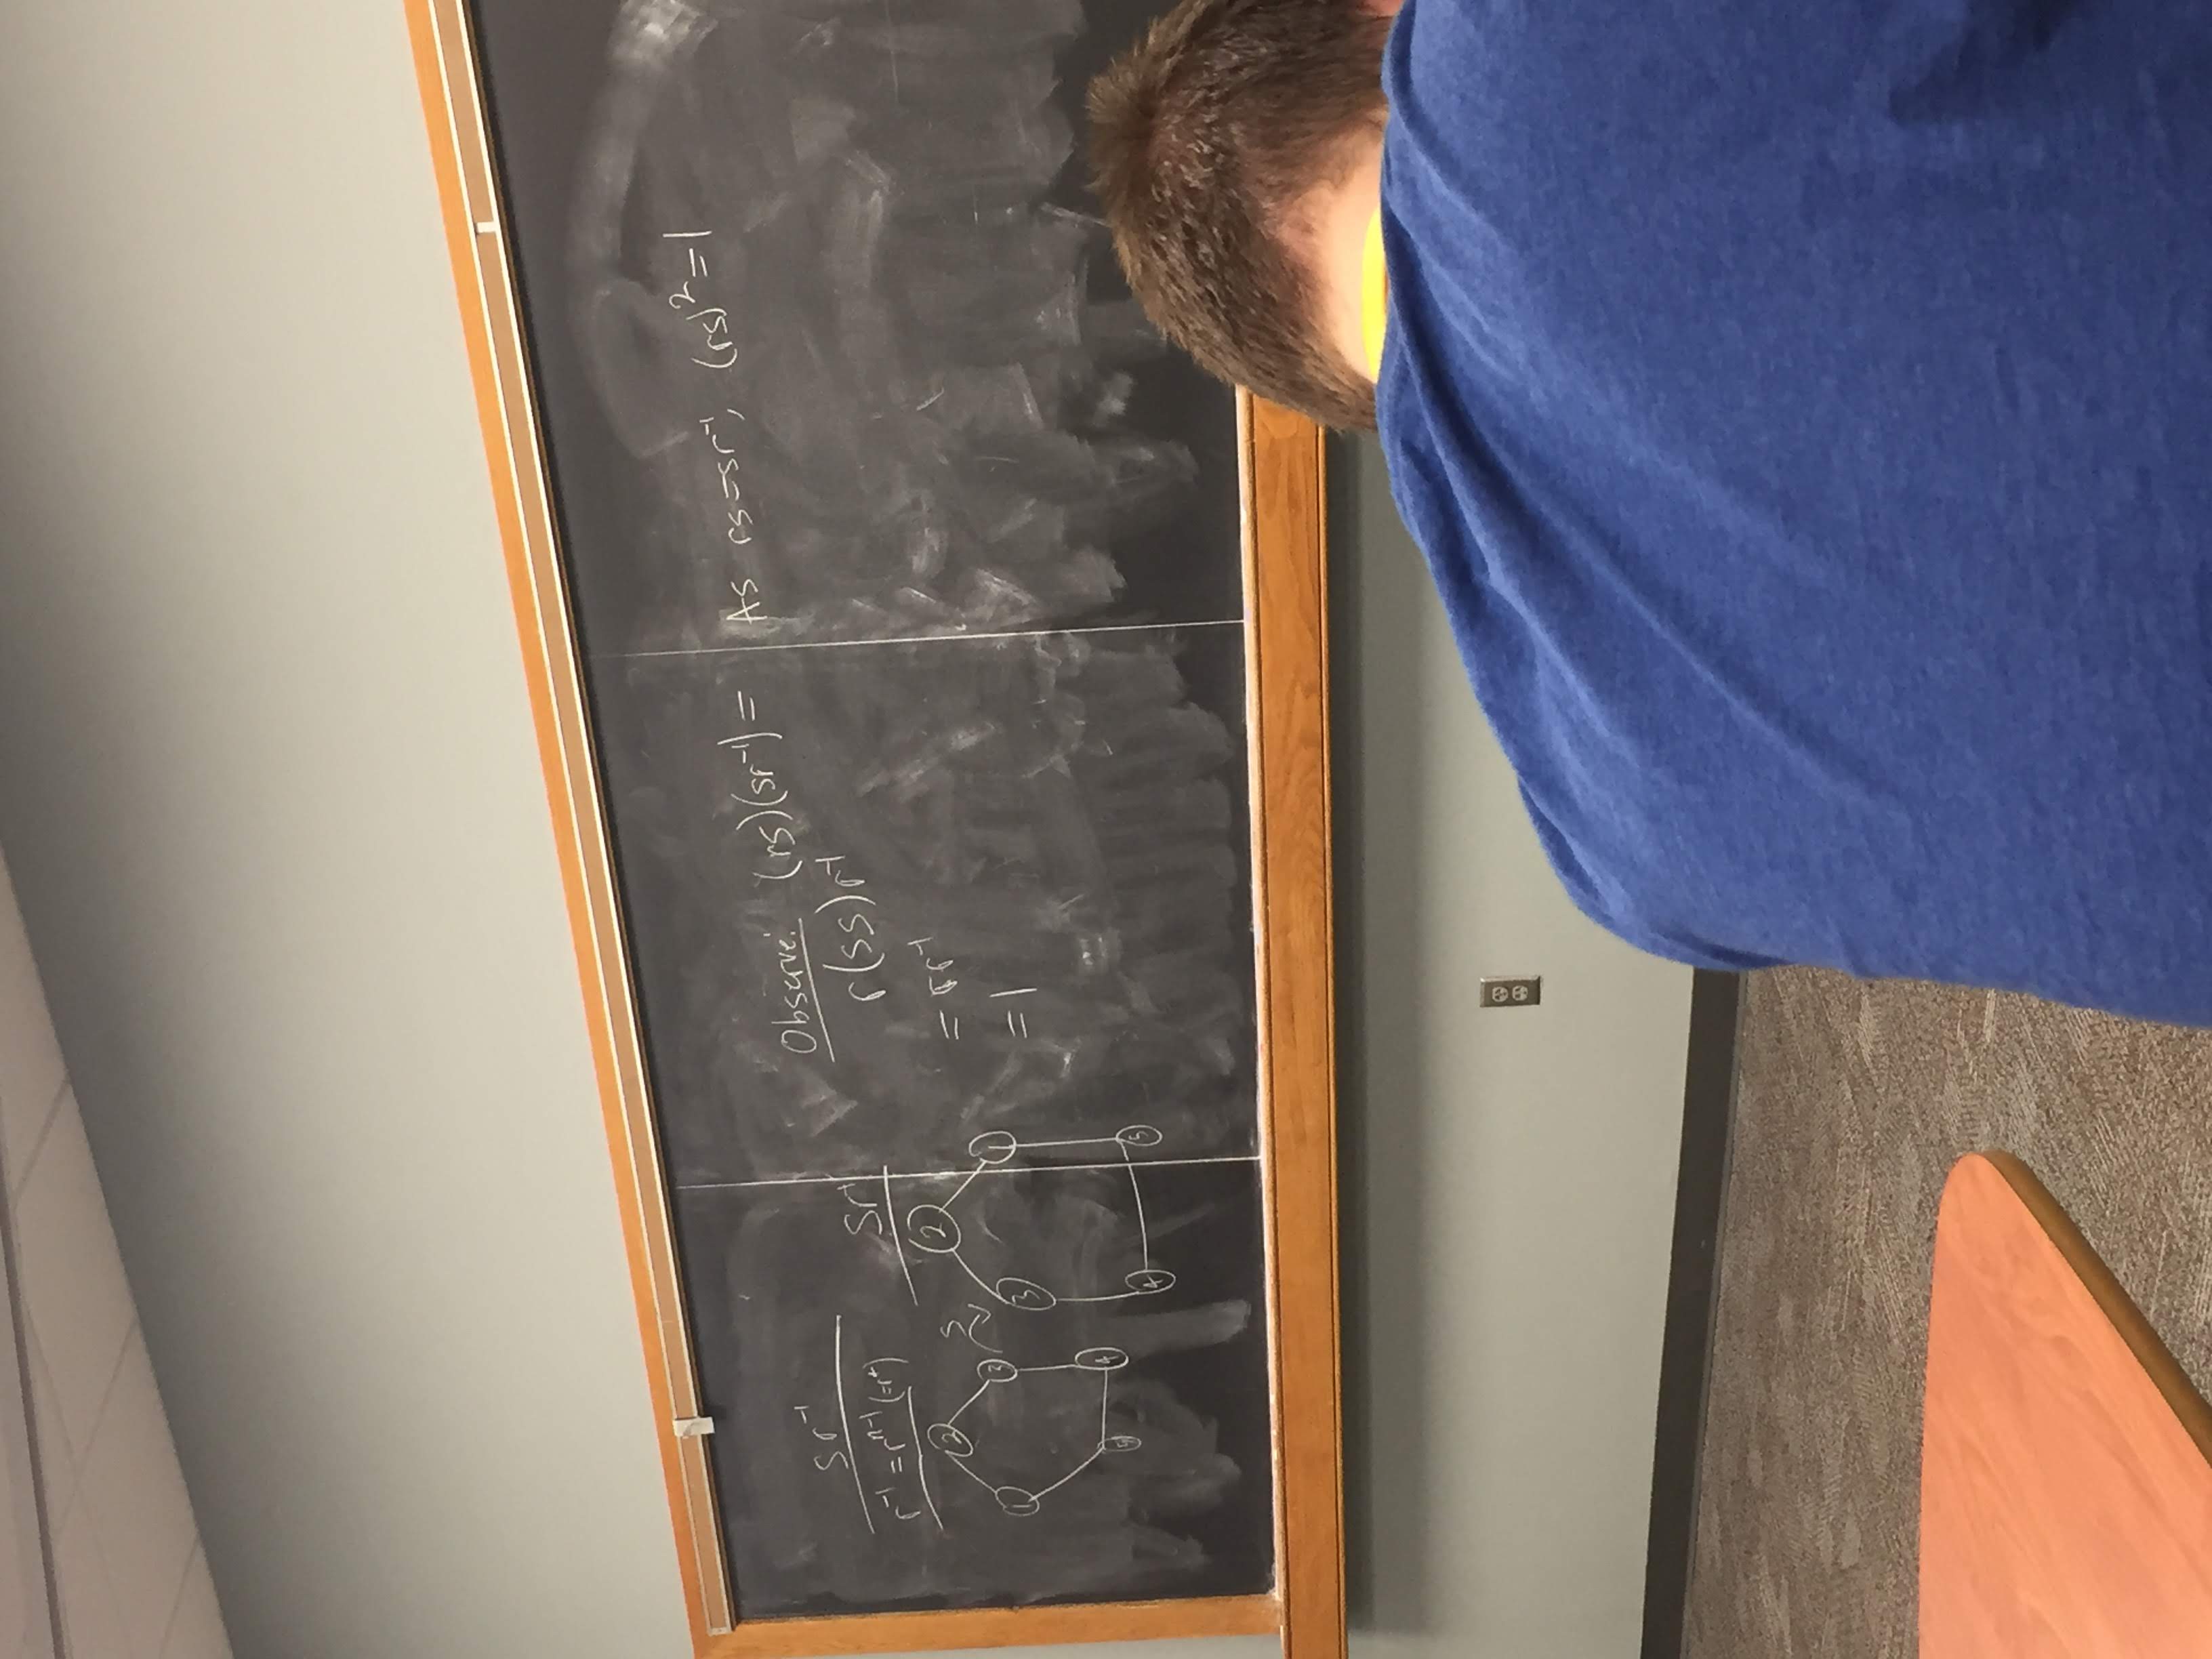 Sr⁻¹
r⁻¹ = rⁿ⁻¹ (=r⁴)
2
1
3
5
4
S
Sr⁻¹
2
3
1
4
5
Observe: (rs)(sr⁻¹) =
r(ss)r⁻¹
= rr⁻¹
= 1
As rs=sr⁻¹, (rs)²=1